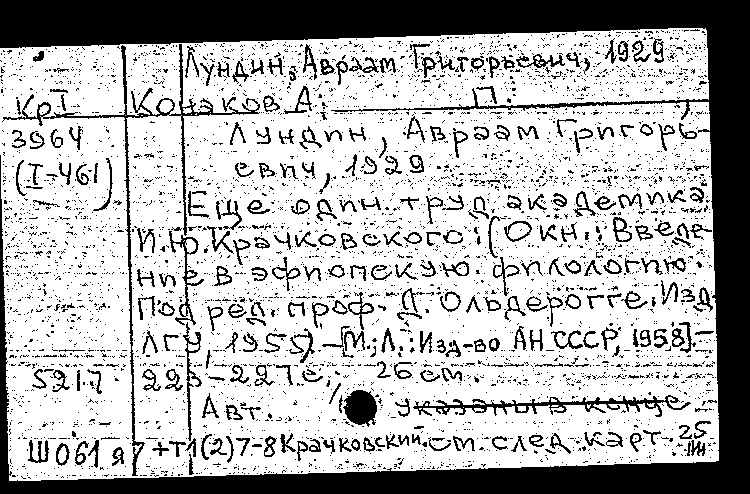 Лундин, Авраам Григорьевич, 1929
КрI Конаков А. П.
3964 Лундин, Авраам Григорь-
(I-461) евич, 1929
Еще один труд академика
И.Ю.Крачковского: (Окн.: Введе-
ние в эфиопскую филологию.
Под ред. проф. Д. Ольдерогге. Изд.
ЛГУ, 1955) - [М.; Л.: Изд-во АН СССР, 1958].-
5217 223-227 с. 26 см.
Авт. указаны в конце
Ш061я7+Т1(2)7-8Крачковский см. след. карт. 25